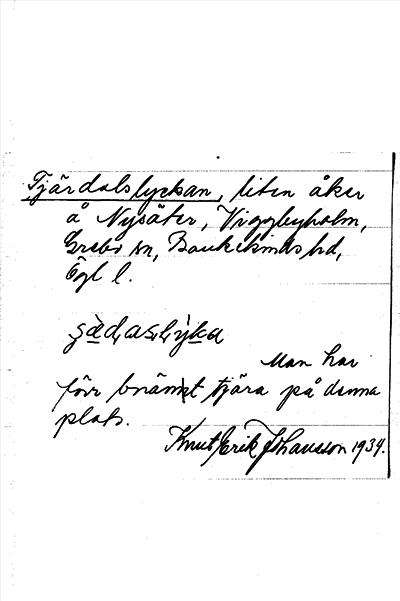 Tjärdalslyckan, liten åker
å Nysäter, Viggbyholm,
Grebo sn, Bankekinds hd,
Ögl l.
Man har
förr bränt tjära på denna
plats.
Knut Erik Johansson 1934.